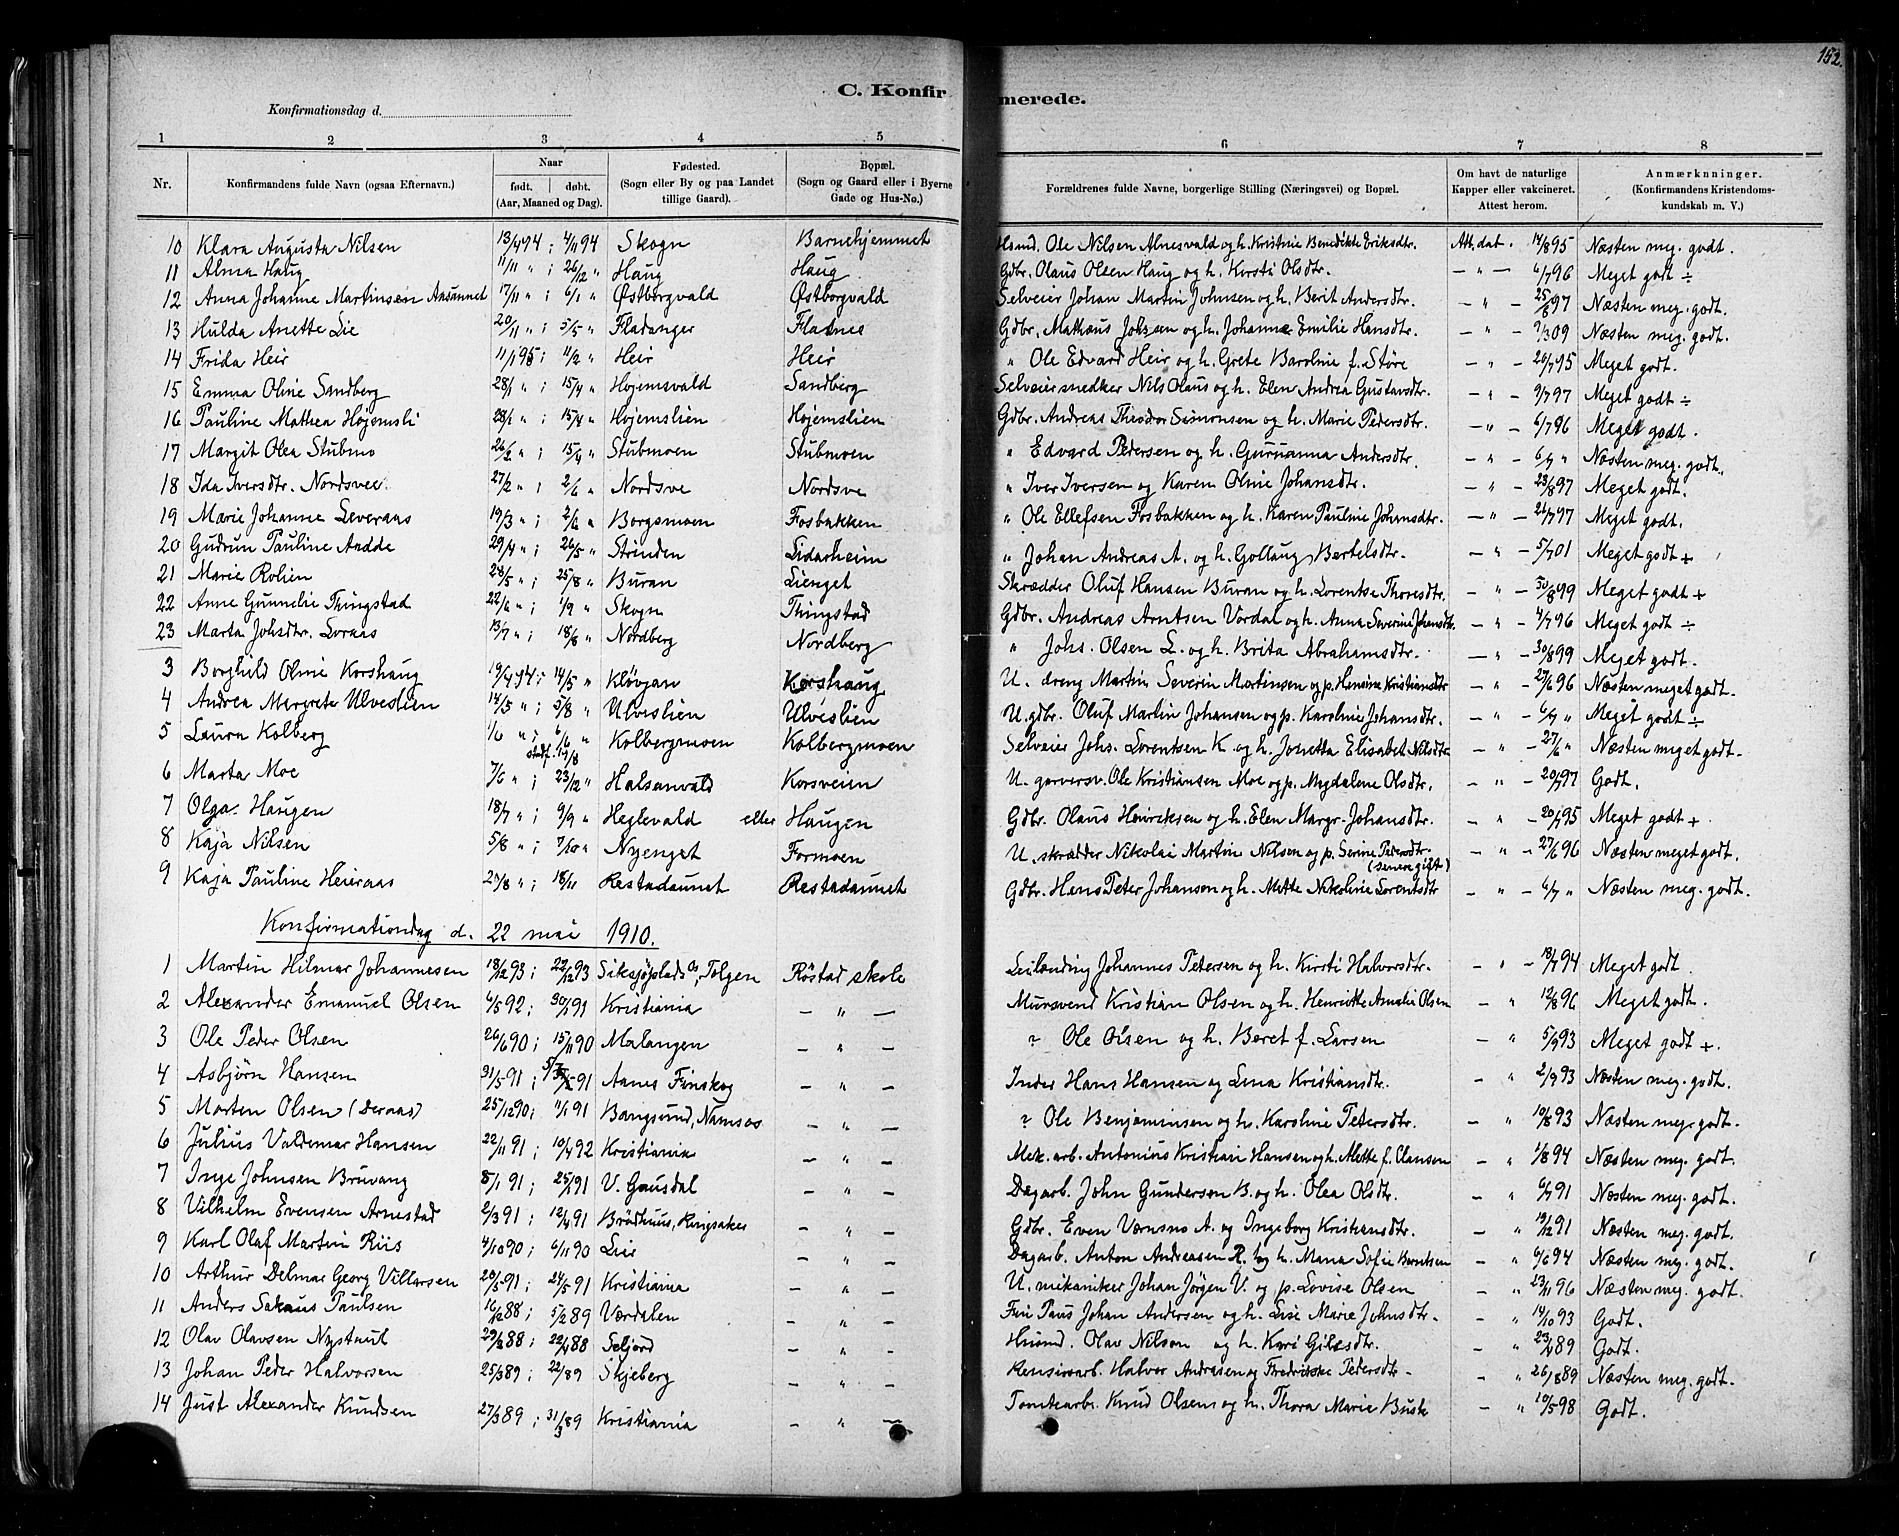 152.
C. Konfirmerede.
Konfirmationsdag d.
1 2 3 4 5 6 7 8
Nr. Konfirmandens fulde Navn (ogsaa Efternavn.) Naar født. døbt. (Aar, Maaned og Dag). Fødested. (Sogn eller By og paa Landet tillige Gaard). Bopæl. (Sogn og Gaard eller i Byerne Gade og Hus-No.) Forældrenes fulde Navne, borgerlige Stilling (Næringsvei) og Bopæl. Om havt de naturlige Kapper eller vakcineret. Attest herom. Anmærkninger. (Konfirmandens Kristendomskundskab m. V.)
10 Klara Augusta Nilsen 13/4 94; 4/11 94 Skogn Barnehjemmet Husmd. Ole Nilsen Alnesvald og h. Kristine Benedikte Eriksdtr. Att. dat. 14/8 95 Næsten meg. godt.
11 Alma Haug 11/11 "; 26/12 " Haug Haug Gdbr. Olaus Olsen Haug og h. Kirsti Olsdtr. — " — 6/7 96 Meget godt ÷
12 Anna Johanne Martinsen Aasunnet 17/11 "; 6/1 " Østborgvald Østborgvald Selveier Johan Martin Johnsen og h. Berit Andersdtr. — " — 25/8 97 Næsten meg. godt.
13 Hulda Anette Lie 20/11 "; 5/5 " Fladanger Flatnes Gdbr. Mathæus Johsen og h. Johanna Emilie Hansdtr. — " — 9/3 09 Næsten meg. godt.
14 Frida Heir 11/1 95; 11/2 " Heir Heir " Ole Edvard Heir og h. Grete Baroline f. Støre — " — 20/7 95 Meget godt.
15 Emma Oline Sandberg 28/1 "; 15/4 " Højemsvald Sandberg Selveiersnedker Nils Olaus og h. Elen Andrea Gustavsdtr. — " — 9/7 97 Meget godt ÷
16 Pauline Mathea Højemsli 28/1 "; 15/4 " Højemslien Højemslien Gdbr. Andreas Theodor Simonsen og h. Marie Pedersdtr. — " — 6/7 96 Meget godt.
17 Margit Olea Stubmo 26/2 "; 15/4 " Stubmoen Stubmoen " Edvard Pedersen og h. Gurianna Andersdtr. — " — 6/7 " Næsten meg. godt.
18 Ida Iversdtr. Nordsvee 27/2 "; 2/6 " Nordsve Nordsve " Iver Iversen og Karen Oline Johansdtr. — " — 23/8 97 Meget godt.
19 Marie Johanne Leveraas 19/3 "; 2/6 " Borgsmoen Fosbakken " Ole Ellefsen Fosbakken og h. Karen Pauline Johansdtr. — " — 26/7 97 Meget godt.
20 Gudrun Pauline Aadde 29/4 "; 26/5 " Strinden Lidarheim " Johan Andreas A. og h. Gollaug Bertelsdtr. — " — 5/7 01 Meget godt +
21 Marie Rolien 28/5 "; 25/8 " Buran Lienget Skrædder Oluf Hansen Buran og h. Lorentse Thoresdtr. — " — 30/8 99 Meget godt +
22 Anne Gunnelie Thingstad 22/6 "; 1/9 " Skogn Thingstad Gdbr. Andreas Arntsen Vordal og h. Anna Severine Johansdtr. — " — 4/7 96 Meget godt ÷
23 Marta Johsdtr. Loraas 13/7 "; 18/8 " Nordberg Nordberg " Johs. Olsen L. og h. Brita Abrahamsdtr. — " — 30/8 99 Meget godt.
3 Borghild Oline Korshaug 19/4 94; 14/5 " Kløvgan Korshaug U. dreng Martin Severin Martinsen og p. Henrine Kristiansdtr — " — 27/6 96 Næsten meget godt.
4 Andrea Margrete Ulveslien 14/5 "; 5/8 " Ulveslien Ulveslien U. gdbr. Oluf Martin Johansen og p. Karoline Johansdtr. — " — 6/7 " Meget godt ÷
5 Laura Kolberg 1/6 "; 6/6 " stadf. 19/8 Kolbergmoen Kolbergmoen Selveier Johs. Lorentsen K. og h. Jonetta Elisabet Nilsdtr — " — 27/6 " Næsten meget godt.
6 Marta Moe 7/6 "; 23/12 " Halsanvald Korsveien U. garversv. Ole Kristiansen Moe og p. Magdalene Olsdtr. — " — 20/7 97 Godt.
7 Olga Haugen 18/7 "; 9/9 " Heglevald eller Haugen Gdbr. Olaus Henriksen og h. Elen Margr. Johansdtr. — " — 20/7 95 Meget godt +.
8 Kaja Nilsen 5/8 "; 7/10 " Nyenget Formoen U. skrædder Nikolai Martin Nilsen og p. Serine Pedersdtr. (senere gift) — " — 27/6 96 Næsten meget godt.
9 Kaja Pauline Heieraas 27/8 "; 18/11 Restadaunet Restadaunet Gdbr. Hans Peter Johansen og h. Mette Nikoline Lorentsdtr — " — 6/7 " Næsten meg. godt.
Konfirmationdag d. 22 mai 1910.
1 Martin Hilmar Johannesen 18/12 93; 22/12 93 Siksjøplads, Tolgen Röstad skole Leilænding Johannes Petersen og h. Kirsti Halvorsdtr. — " — 18/7 94 Meget godt.
2 Alexander Emanuel Olsen 6/5 92; 30/1 91 Kristiania — " — Mursvend Kristian Olsen og h. Henriette Amalie Olsen — " 12/8 96 Meget godt.
3 Ole Peder Olsen 26/6 90; 15/11 90 Malangen — " — ? Ole Olsen og h. Beret f. Larsen — " 5/9 93 Meget godt +.
4 Asbjørn Hansen 31/5 91; 91 Aanes Finskog — " — Inder Hans Hansen og Lina Kristiansdtr. — " 2/9 93 Næsten meg. godt.
5 Morten Olsen (Deraas) 25/12 90; 11/1 91 Bangsund, Namsos — " — ? Ole Benjaminsen og h. Karoline Petersdtr. — " 10/8 93 Næsten meg. godt.
6 Julius Valdemar Hansen 22/11 91; 10/4 92 Kristiania — " — Mek. arb. Antonius Kristian Hansen og h. Mette f. Clausen — " 1/8 94 Næsten meg. godt.
7 Inge Johnsen Bruvang 8/1 91; 25/1 91 V. Gausdal — " — Dagarb. John Gundersen B. og h. Olea Olsdtr. — " 6/7 91 Næsten meg. godt.
8 Vilhelm Evensen Arnestad 2/3 91; 12/4 91 Brödhuus, Ringsaker — " — Gdbr. Even Vomsno A. og Ingeborg Kristiansdtr. — " 19/12 91 Næsten meg. godt.
9 Karl Olaf Martin Riis 4/10 90; 6/11 90 Lier — " — Dagarb. Anton Andreasen R. og h. Maria Sofie Berntsen — " 6/6 94 Næsten meg. godt.
10 Arthur Delmar Georg Villarsen 20/3 91; 24/5 91 Kristiania — " — U. mikaniker Johan Jørgen V. og p. Lovise Olsen " 23/11 96 Næsten meg. godt.
11 Anders Paulsen 16/12 88; 5/2 89 Værdalen — " Johan Andersen og h. Lise Marie Johnsdtr. — " 14/10 93 Godt.
12 Olav Olavsen Nystaul 29/3 88; 22/4 88 Seljord — " Husmd. Olav Nilsen og h. Kari Gilesdtr. — " 23/4 89 Godt.
13 Johan Peder Halvorsen 25/3 89; 22/ 89 Skjeberg — " — Rensiorarb. Halvor Andresen og Fredrikke Pedersdtr — " 26/8 89 Næsten meg. godt.
14 Just Alexander Knudsen 27/3 89; 31/3 89 Kristiania — " — Tomtearb. Knud Olsen og h. Thora Marie Busk — " 10/5 98 Godt.